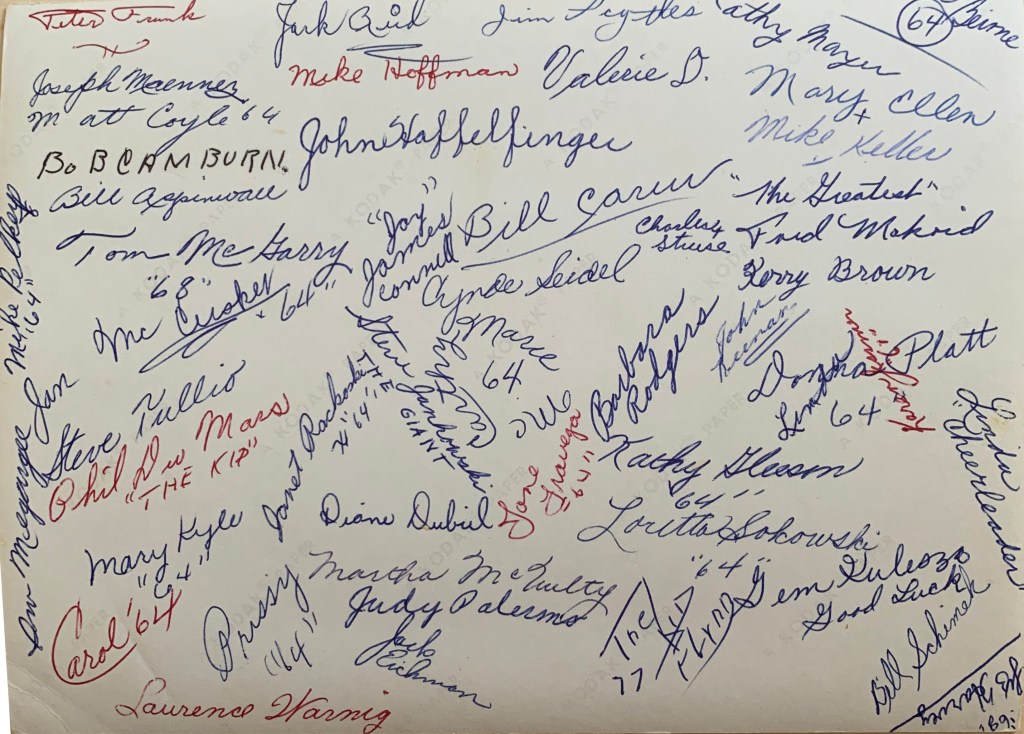 Peter Frunk
Jack Reid
Jim
Cathy Mayer
64 Beirne
Joseph Maenner
Mike Hoffman
Valerie D.
Matt Coyle 64
Mary Ellen
+
Mike Keller
BOB CAMBURN.
John Haffelfinger
Bill Aspinwall
Bill Carew
"The Greatest"
Fred Makoid
Charles Struse
Mike Pelkey
"64"
Tom McGarry
"68"
"Jay"
James
Connell
Cynde Seidel
Kerry Brown
Mc Cusker
"64"
Marie
64
Barbara
Rodgers
John
Donna Platt
64
Linda
"Cheerleader"
Steve Tullio
Phil Du Mars
"THE KID"
Janet Rackoski
"64"
Steve Jankowski
THE
GIANT
Jane
Travega
"64"
Kathy Gleeson
"64"
Mary Kyle
"64"
Diane Dubiel
Loretta Sokowski
"64"
Martha McNulty
Judy Palermo
Carol '64
Prissy
"64"
Jack
Eichman
THE
KID
FLYNN
77
Good Luck
Bill Schimek
Laurence Warnig
A KODAK PAPER